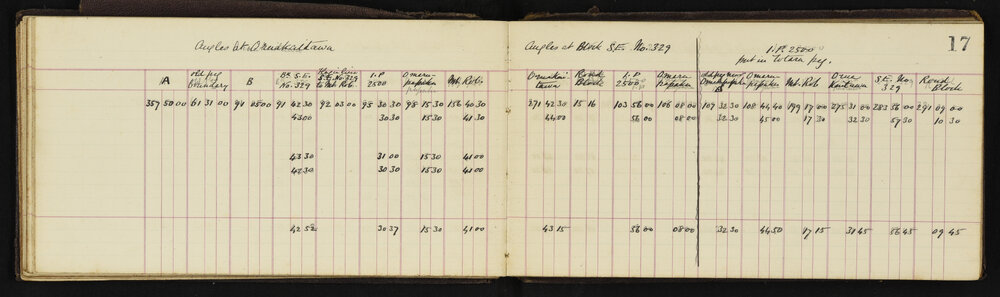 17
Angles at
A
old peg boundary
B
Bk. S.E. No. 329
I.P. 2500
Mt. Rob.
357 50 00 61 31 00 94 05 00 91 42 30 92 03 00 95 30 30 98 15 30 156 40 30
43 00 30 30 15 30 41 30
43 30 31 00 15 30 41 00
42 30 30 30 15 30 41 00
42 52 30 37 15 30 41 00
Angles at Block S.E. No. 329
Round Block
I.P. 2500
271 42 30 15 16 103 56 00 106 08 00
44 00 56 00 08 00
43 15 56 00 08 00
I.P. 2500
put in Totara peg.
Mt. Rob.
S.E. No. 329
Round Block
107 32 30 108 44 40 199 17 00 275 31 00 283 56 00 291 09 00
32 30 45 00 17 30 32 30 57 30 10 30
32 30 44 50 17 15 31 45 56 45 09 45